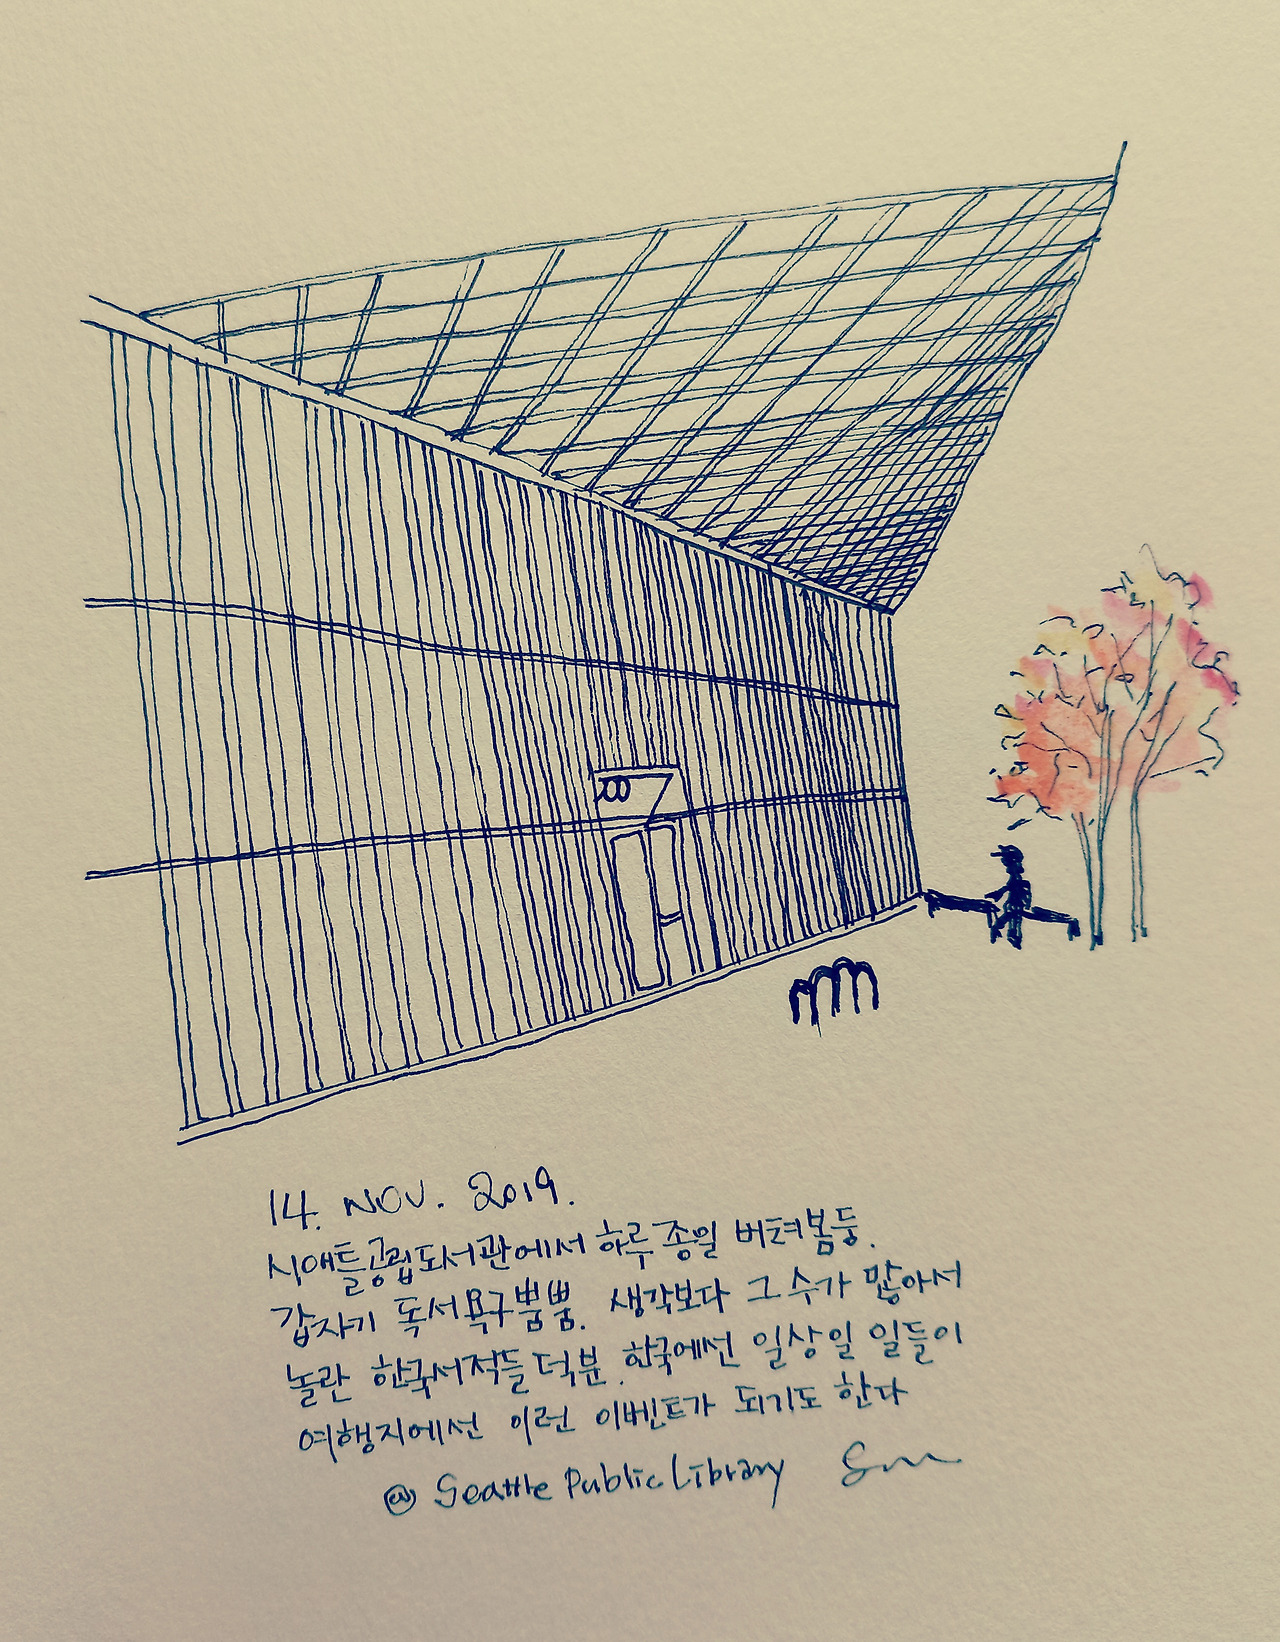 14. NOV. 2019.
시애틀공립도서관에서 하루종일 버텨봄둥.
갑자기 독서욕구뿜뿜. 생각보다 그 수가 많아서
놀란 한국서적들 덕분. 한국에선 일상일 일들이
여행지에선 이런 이벤트가 되기도 한다
@ Seattle Public Library